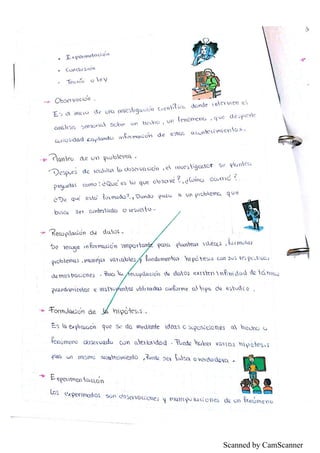 • Experimentación
• Conclusión
- Teoría o ley
→ Observación.
Es el inicio de una investigación científica donde interviene el
análisis sensorial sobre un hecho, un fenómeno, que despierte
curiosidad captando información de estos acontecimientos.
→ Planteo de un problema.
Después de realizar la observación, el investigador se plantea
preguntas como: ¿Qué es lo que observé?, ¿Cómo ocurrió?
¿De qué está formado?, Dando paso a un problema, que
busca ser contestado o resuelto.
→ Recopilación de datos.
Se recoge información importante para plantear ideas, formular
problemas, manejar variables y fundamentar hipótesis con sus respectivas
demostraciones. Para la recopilación de datos existen infinidad de técnicas
procedimientos e instrumentos utilizados conforme al tipo de estudio.
→ Formulación de la hipótesis.
Es la explicación que se da mediante ideas o suposiciones al hecho o
fenómeno observado con anterioridad. Puede haber varias hipótesis
para un mismo acontecimiento, Puede ser falsa o verdadera.
→ Experimentación
Los experimentos son observaciones y manipulaciones de un fenómeno
Scanned by CamScanner